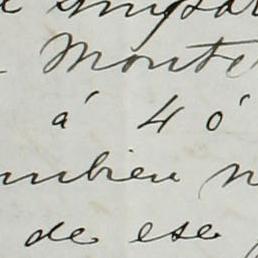 Monte
á 4 ó
mbien n
de ese